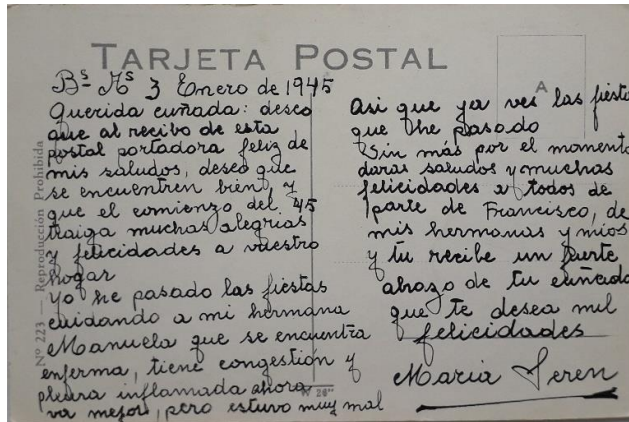 TARJETA POSTAL
Bs As 3 Enero de 1945
Querida cuñada: deseo
que al recibo de esta
postal portadora feliz de
mis saludos, deseo que
se encuentren bien, y
que el comienzo del 45
traiga muchas alegrias
y felicidades a vuestro
hogar
Yo he pasado las fiestas
cuidando a mi hermana
Manuela que se encuentra
enferma, tiene congestión y
pleura inflamada ahora
va mejor, pero estuvo muy mal
A
Asi que ya ves las fiestas
que he pasado
Sin más por el momento
daras saludos y muchas
felicidades a todos de
parte de Francisco, de
mis hermanas y mios
y tu recibe un fuerte
abrazo de tu cuñada
que te desea mil
felicidades
Maria Seren
Nº 223 — Reproducción Prohibida